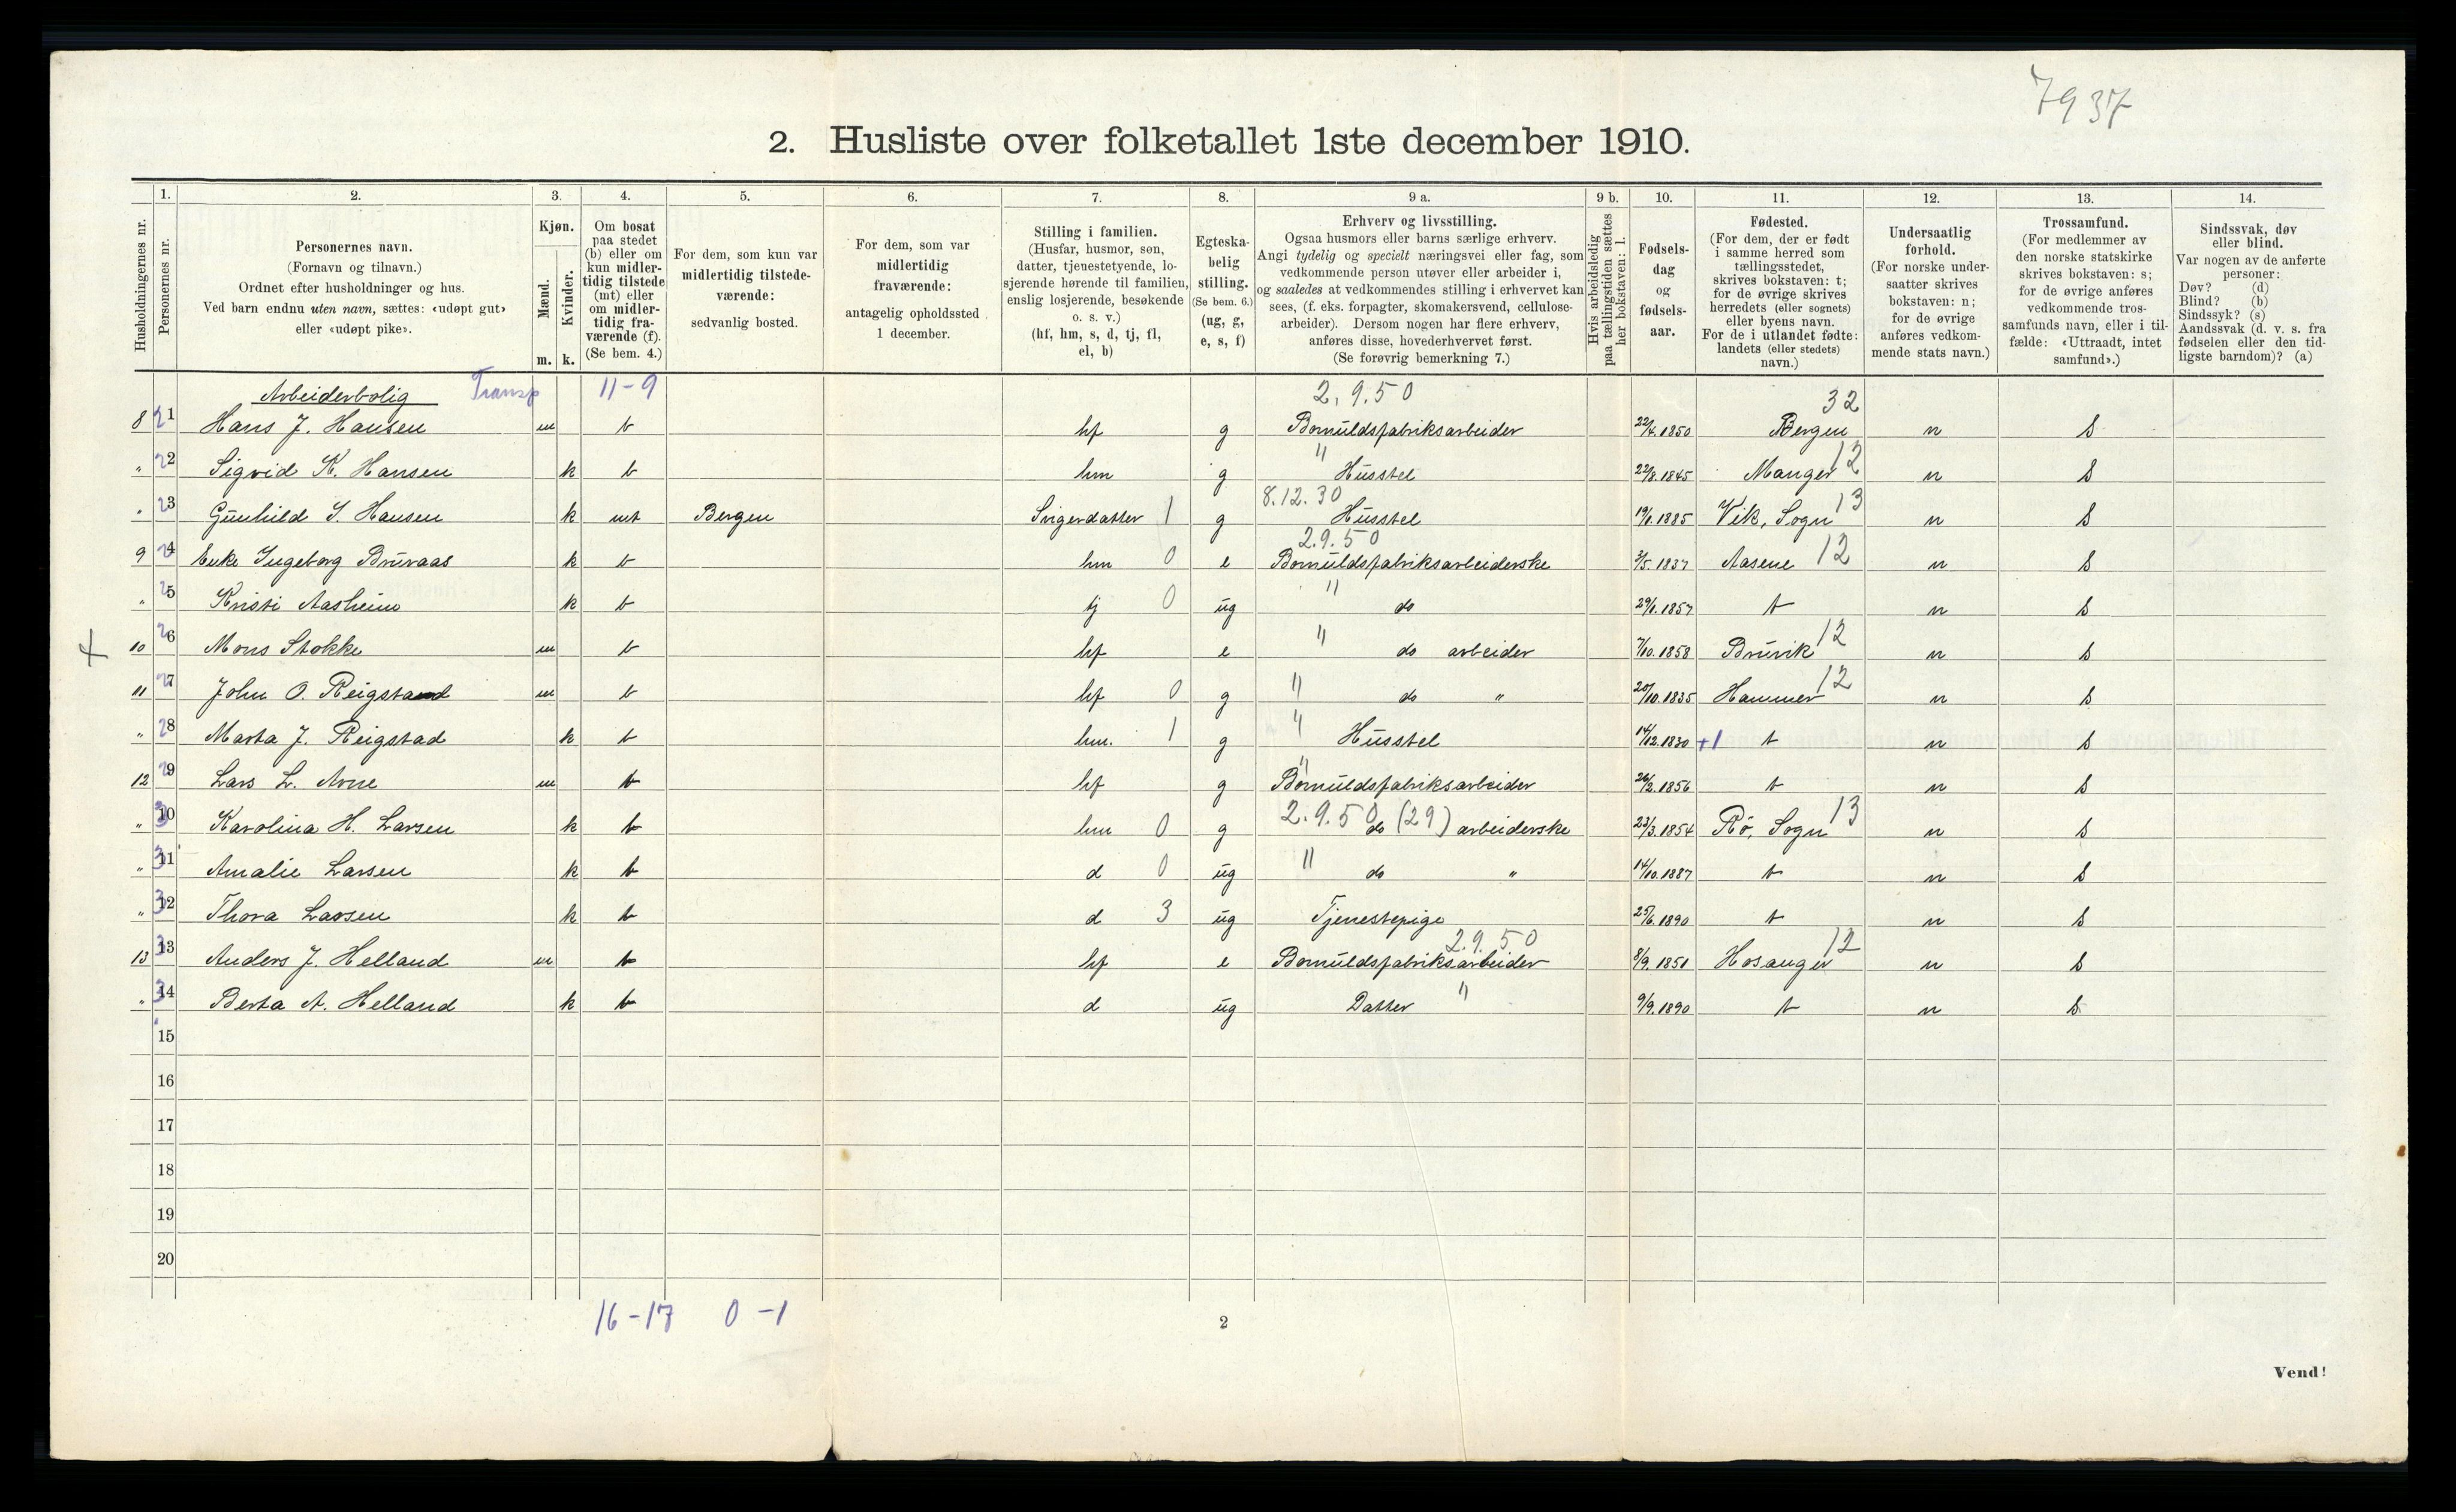 7937
2. Husliste over folketallet 1ste december 1910.
Husholdningernes nr.
1. Personernes nr.
2. Personernes navn. (Fornavn og tilnavn.) Ordnet efter husholdninger og hus. Ved barn endnu uten navn, sættes: «udøpt gut» eller «udøpt pike».
3. Kjøn. Mænd. m. Kvinder. k.
4. Om bosat paa stedet (b) eller om kun midlertidig tilstede (mt) eller om midlertidig fraværende (f). (Se bem. 4.)
5. For dem, som kun var midlertidig tilstedeværende: sedvanlig bosted.
6. For dem, som var midlertidig fraværende: antagelig opholdssted 1 december.
7. Stilling i familien. (Husfar, husmor, søn, datter, tjenestetyende, losjerende hørende til familien, enslig losjerende, besøkende o. s. v.) (hf, hm, s, d, tj, fl, el, b)
8. Egteskabelig stilling. (Se bem. 6.) (ug, g, e, s, f)
9 a. Erhverv og livsstilling. Ogsaa husmors eller barns særlige erhverv. Angi tydelig og specielt næringsvei eller fag, som vedkommende person utøver eller arbeider i, og saaledes at vedkommendes stilling i erhvervet kan sees, (f. eks. forpagter, skomakersvend, cellulosearbeider). Dersom nogen har flere erhverv, anføres disse, hovederhvervet først. (Se forøvrig bemerkning 7.)
9 b. Hvis arbeidsledig paa tællingstiden sættes her bokstaven: l.
10. Fødselsdag og fødselsaar.
11. Fødested. (For dem, der er født i samme herred som tællingsstedet, skrives bokstaven: t; for de øvrige skrives herredets (eller sognets) eller byens navn. For de i utlandet fødte: landets (eller stedets) navn.)
12. Undersaatlig forhold. (For norske undersaatter skrives bokstaven: n; for de øvrige anføres vedkommende stats navn.)
13. Trossamfund. (For medlemmer av den norske statskirke skrives bokstaven: s; for de øvrige anføres vedkommende trossamfunds navn, eller i tilfælde: «Uttraadt, intet samfund».)
14. Sindssvak, døv eller blind. Var nogen av de anførte personer: Døv? (d) Blind? (b) Sindssyk? (s) Aandssvak (d. v. s. fra fødselen eller den tidligste barndom)? (a)
Arbeiderbolig Transp 11-9 2.9.50 32
8 21 Hans J. Hansen m b hf g Bomuldsfabriksarbeider 22/4.1850 Bergen n s
" 22 Sigvid K. Hansen k b hm g " Husstel 22/8.1845 Manger 12 n s
" 23 Gunhild S. Hansen k mt Bergen Svigerdatter 1 g 8.12.30 Husstel 19/1.1885 Vik, Sogn 13 n s
9 24 Enke Ingeborg Bruraas k b hm 0 e 2.9.50 Bomuldsfabriksarbeiderske 3/5.1837 Aasene 12 n s
" 25 Kristi Aasheim k b tj 0 ug " do 29/1.1857 t n s
10 26 Mons Stokke m b hf e " do arbeider 7/10.1858 Bruvik 12 n s
11 27 John O. Reigstad m b hf 0 g " do " 20/10.1835 Hammer 12 n s
" 28 Marta J. Reigstad k b hm. 1 g " Husstel 14/12.1830 +1 t n s
12 29 Lars L. Arne m b hf g " Bomuldsfabriksarbeider 26/2.1856 t n s
" 30 Karolina H. Larsen k b hm 0 g 2.9.50 do (29) arbeiderske 23/3.1854 Rø, Sogn 13 n s
" 31 Amalie Larsen k b d 0 ug " do " 14/10.1887 t n s
" 32 Thora Larsen k b d 3 ug Tjenestepige 25/6.1890 t n s
13 33 Anders J. Helland m b hf e Bomuldsfabriksarbeider 2.9.50 8/9.1851 Hosanger 12 n s
" 34 Berta A. Helland k b d ug Datter " 9/9.1890 t n s
15
16
17
18
19
20
16-17 0-1
2
Vend!